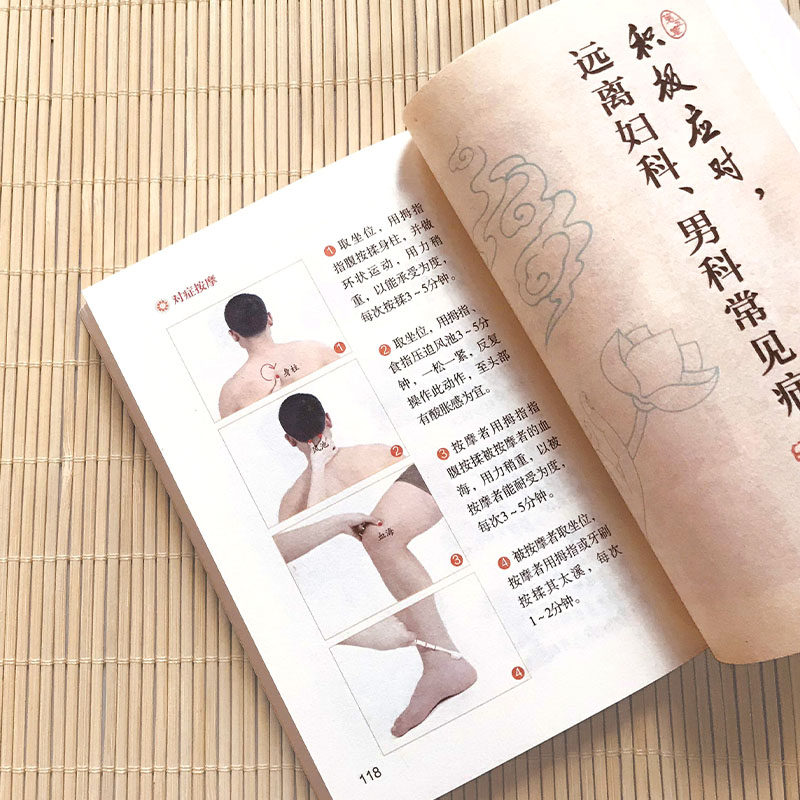 对症按摩
❶取坐位，用拇指
指腹按揉身柱，并做
环状运动，用力稍
重，以能承受为度，
每次按揉3～5分钟。
❷取坐位，用拇指、
食指压迫风池3～5分
钟，一松一紧，反复
操作此动作，至头部
有酸胀感为宜。
❸按摩者用拇指指
腹按揉被按摩者的血
海，用力稍重，以被
按摩者能耐受为度，
每次3～5分钟。
❹被按摩者取坐位，
按摩者用拇指或牙刷
按揉其太溪，每次
1～2分钟。
身柱
❶
风池
❷
血海
❸
❹
118
积极应对，
远离妇科、男科常见病